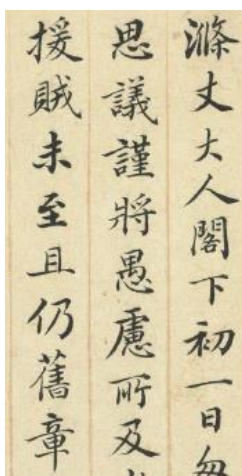 滌丈大人閣下初一日匆
思議謹將愚慮所及
援賊未至且仍舊章